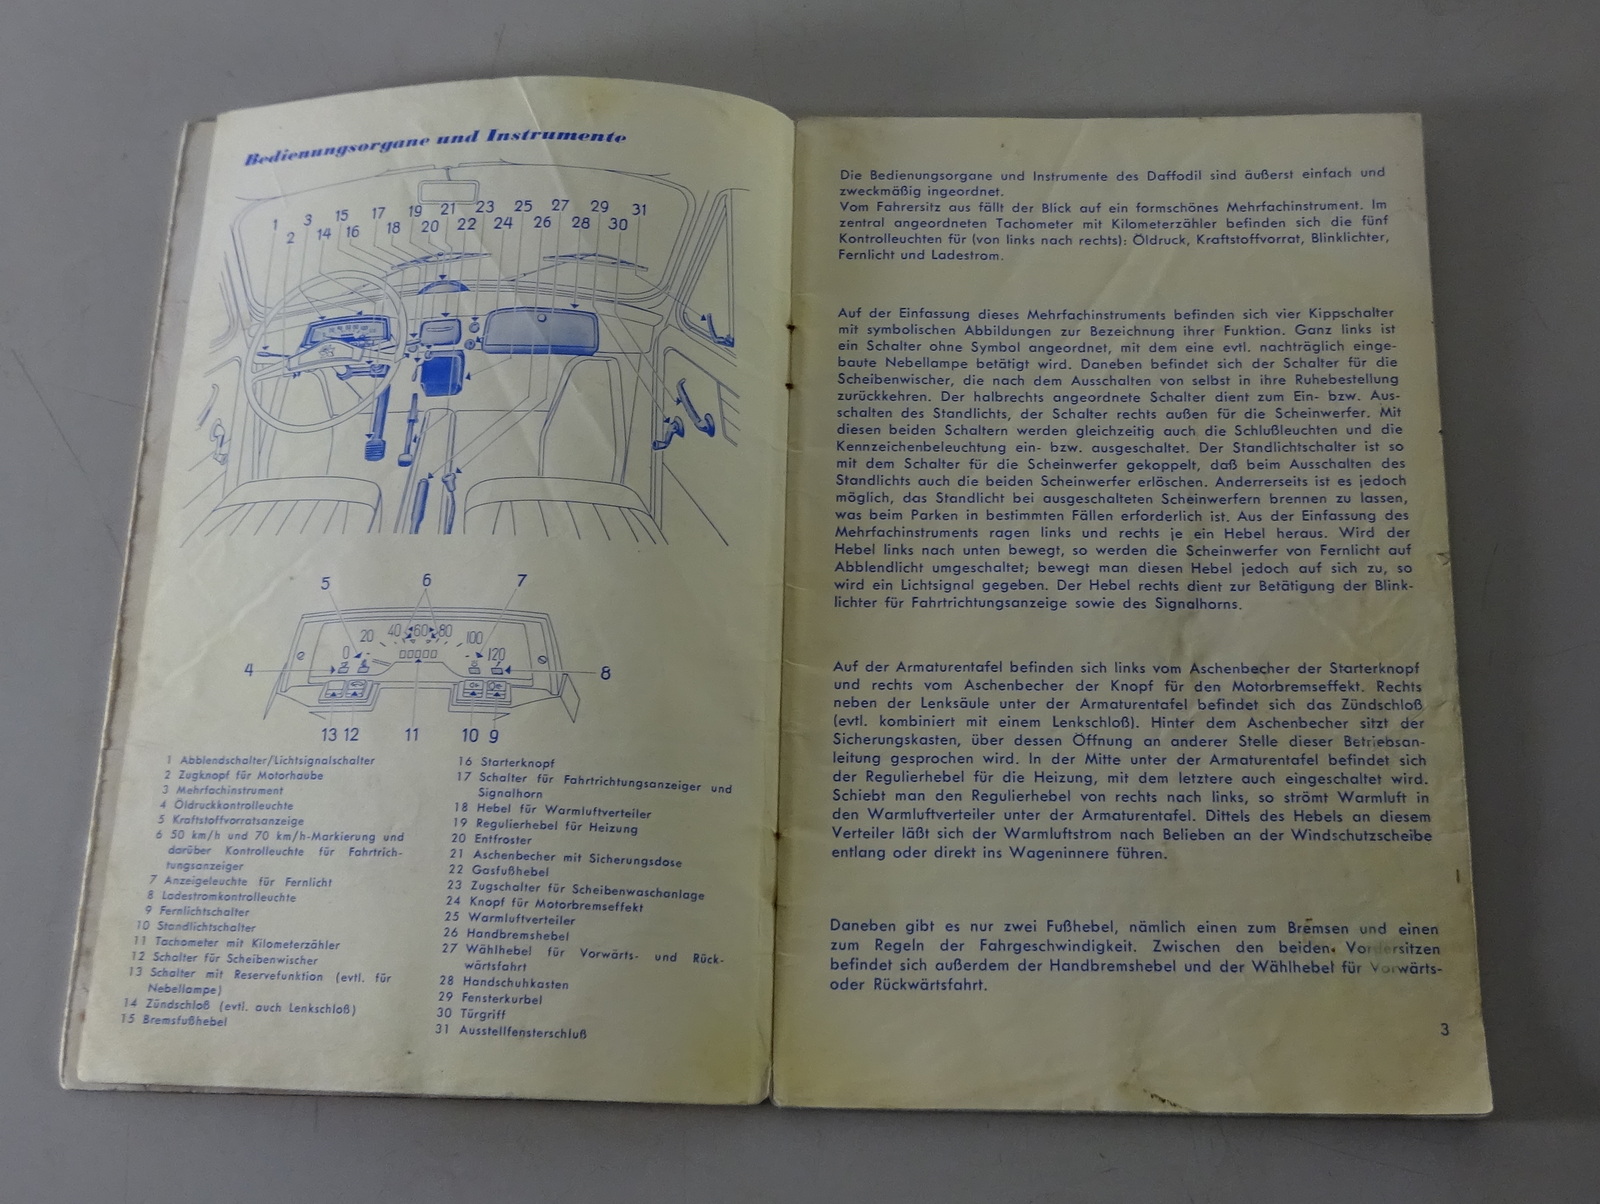 Bedienungsorgane und Instrumente
1 2 3 14 15 16 17 18 19 20 21 22 23 24 25 26 27 28 29 30 31
5 6 7
0 20 40 60 80 100 120
00000
4 8
13 12 11 10 9
1 Abblendschalter/Lichtsignalschalter
2 Zugknopf für Motorhaube
3 Mehrfachinstrument
4 Öldruckkontrolleuchte
5 Kraftstoffvorratsanzeige
6 50 km/h und 70 km/h-Markierung und
darüber Kontrolleuchte für Fahrtrich-
tungsanzeiger
7 Anzeigeleuchte für Fernlicht
8 Ladestromkontrolleuchte
9 Fernlichtschalter
10 Standlichtschalter
11 Tachometer mit Kilometerzähler
12 Schalter für Scheibenwischer
13 Schalter mit Reservefunktion (evtl. für
Nebellampe)
14 Zündschloß (evtl. auch Lenkschloß)
15 Bremsfußhebel
16 Starterknopf
17 Schalter für Fahrtrichtungsanzeiger und
Signalhorn
18 Hebel für Warmluftverteiler
19 Regulierhebel für Heizung
20 Entfroster
21 Aschenbecher mit Sicherungsdose
22 Gasfußhebel
23 Zugschalter für Scheibenwaschanlage
24 Knopf für Motorbremseffekt
25 Warmluftverteiler
26 Handbremshebel
27 Wählhebel für Vorwärts- und Rück-
wärtsfahrt
28 Handschuhkasten
29 Fensterkurbel
30 Türgriff
31 Ausstellfensterschluß
Die Bedienungsorgane und Instrumente des Daffodil sind äußerst einfach und
zweckmäßig ingeordnet.
Vom Fahrersitz aus fällt der Blick auf ein formschönes Mehrfachinstrument. Im
zentral angeordneten Tachometer mit Kilometerzähler befinden sich die fünf
Kontrolleuchten für (von links nach rechts): Öldruck, Kraftstoffvorrat, Blinklichter,
Fernlicht und Ladestrom.
Auf der Einfassung dieses Mehrfachinstruments befinden sich vier Kippschalter
mit symbolischen Abbildungen zur Bezeichnung ihrer Funktion. Ganz links ist
ein Schalter ohne Symbol angeordnet, mit dem eine evtl. nachträglich einge-
baute Nebellampe betätigt wird. Daneben befindet sich der Schalter für die
Scheibenwischer, die nach dem Ausschalten von selbst in ihre Ruhebestellung
zurückkehren. Der halbrechts angeordnete Schalter dient zum Ein- bzw. Aus-
schalten des Standlichts, der Schalter rechts außen für die Scheinwerfer. Mit
diesen beiden Schaltern werden gleichzeitig auch die Schlußleuchten und die
Kennzeichenbeleuchtung ein- bzw. ausgeschaltet. Der Standlichtschalter ist so
mit dem Schalter für die Scheinwerfer gekoppelt, daß beim Ausschalten des
Standlichts auch die beiden Scheinwerfer erlöschen. Anderrerseits ist es jedoch
möglich, das Standlicht bei ausgeschalteten Scheinwerfern brennen zu lassen,
was beim Parken in bestimmten Fällen erforderlich ist. Aus der Einfassung des
Mehrfachinstruments ragen links und rechts je ein Hebel heraus. Wird der
Hebel links nach unten bewegt, so werden die Scheinwerfer von Fernlicht auf
Abblendlicht umgeschaltet; bewegt man diesen Hebel jedoch auf sich zu, so
wird ein Lichtsignal gegeben. Der Hebel rechts dient zur Betätigung der Blink-
lichter für Fahrtrichtungsanzeige sowie des Signalhorns.
Auf der Armaturentafel befinden sich links vom Aschenbecher der Starterknopf
und rechts vom Aschenbecher der Knopf für den Motorbremseffekt. Rechts
neben der Lenksäule unter der Armaturentafel befindet sich das Zündschloß
(evtl. kombiniert mit einem Lenkschloß). Hinter dem Aschenbecher sitzt der
Sicherungskasten, über dessen Öffnung an anderer Stelle dieser Betriebsan-
leitung gesprochen wird. In der Mitte unter der Armaturentafel befindet sich
der Regulierhebel für die Heizung, mit dem letztere auch eingeschaltet wird.
Schiebt man den Regulierhebel von rechts nach links, so strömt Warmluft in
den Warmluftverteiler unter der Armaturentafel. Dittels des Hebels an diesem
Verteiler läßt sich der Warmluftstrom nach Belieben an der Windschutzscheibe
entlang oder direkt ins Wageninnere führen.
Daneben gibt es nur zwei Fußhebel, nämlich einen zum Bremsen und einen
zum Regeln der Fahrgeschwindigkeit. Zwischen den beiden Vordersitzen
befindet sich außerdem der Handbremshebel und der Wählhebel für Vorwärts-
oder Rückwärtsfahrt.
3